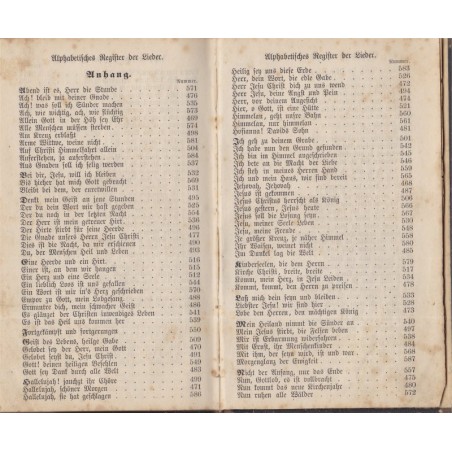 Alphabetisches Register der Lieder.
Anhang.
Nummer.
Abend ist es, Herr die Stunde 571
Ach! bleib mit deiner Gnade 476
Ach! was soll ich Sünder machen 535
Ach, wie wichtig, ach, wie flüchtig 573
Allein Gott in der Höh sey Ehr 469
Alle Menschen müssen sterben 574
Am Kreuz erblaßt 496
Arme Wittwe, weine nicht 581
Auf Christi Himmelfahrt allein 504
Auferstehen, ja auferstehen 584
Aus Gnaden soll ich selig werden 537
Bei dir, Jesu, will ich bleiben 532
Bis hieher hat mich Gott gebracht 530
Bleibe bei dem, der
Denkt mein Geist an jene Stunden 495
Der du das Wort mir hast gegeben 525
Der du noch in der letzten Nacht 554
Der Herr ist mein getreuer Hirt 536
Der Hirte stirbt für seine Heerde 497
Die Gnade unsers Herrn Jesu Christi 477
Dies ist die Nacht, da mir erschienen 490
Du, der Menschen Heil und Leben 493
Eine Heerde und ein Hirt 516
Einer ist, an dem wir hangen 515
Ein Herz und eine Seele 512
Ein lieblich Loos ist uns gefallen 544
Ein Wort ist mir in's Herz geschrieben 570
Empor zu Gott, mein Lobgesang 488
Ermuntre dich, mein schwacher Geist 486
Es glänzet der Christen inwendiges Leben 541
Es ist das Heil uns kommen her 539
Fortgekämpft und fortgerungen 550
Geist des Lebens, heilge Gabe 509
Gelobet sey der Herr, mein Gott 470
Gelobet seyst du, Jesu Christ 491
Gott! deinen heiligen Befehlen 549
Gott sey Dank durch alle Welt 483
Hallelujah! jauchzt ihr Chöre 499
Hallelujah, schöner Morgen 471
Hallelujah, sie hat geschlagen 586
Alphabetisches Register der Lieder.
Nummer.
Heilig sey uns diese Erde 583
Herr, dein Wort, die edle Gabe 526
Herr Jesu Christ dich zu uns wend 472
Herr Jesu, deine Angst und Pein 494
Herr, vor deinem Angesicht 474
Herr, o Gott, ist eine Hütte 521
Himmelan, geht unsre Bahn 560
Himmelan, nur himmelan 561
Hosianna! Davids Sohn 481
Ich geh zu deinem Grabe 501
Ich habe nun den Grund gefunden 542
Ich bin im Himmel angeschrieben 546
Ich bete an die Macht der Liebe
Ich steh in meines Herren Hand
Ich und mein Haus, wir sind bereit 565
Jehovah, Jehovah 468
Jesus ist gekommen 487
Jesus Christus herrscht als König 506
Jesus gestern, Jesus heute 559
Jesus soll die Losung seyn 507
Jesu, meiner Seele Leben 551
Jesu, meine Freude 549
Je größer Kreuz, je näher Himmel 556
Ihr Waisen, weinet nicht 580
Im Dunkel lag die Welt 485
Kinderseelen, die dem Herren 579
Kirche Christi, breite, breite 517
Komm, mein Herz, zu Jesu Leiden 523
Kommt, kommt, den Herren zu preisen 484
Laß mich dein seyn und bleiben 533
Liebster Jesu! wir sind hier 528
Lobe den Herren, den mächtigen König 465
Mein Heiland nimmt die Sünder an 540
Mein Jesus stirbt, die Felsen beben 497
Mir ist Erbarmung widerfahren 538
Mit Ernst, ihr Menschenkinder 484
Mit ihm, der seyn wird, ist und war 568
Morgenglanz der Ewigkeit 587
Nicht der Anfang, nur das Ende 557
Nun, Gottlob, es ist vollbracht 475
Nun kommt das neue Kirchenjahr 480
Nun ruhen alle Wälder 572